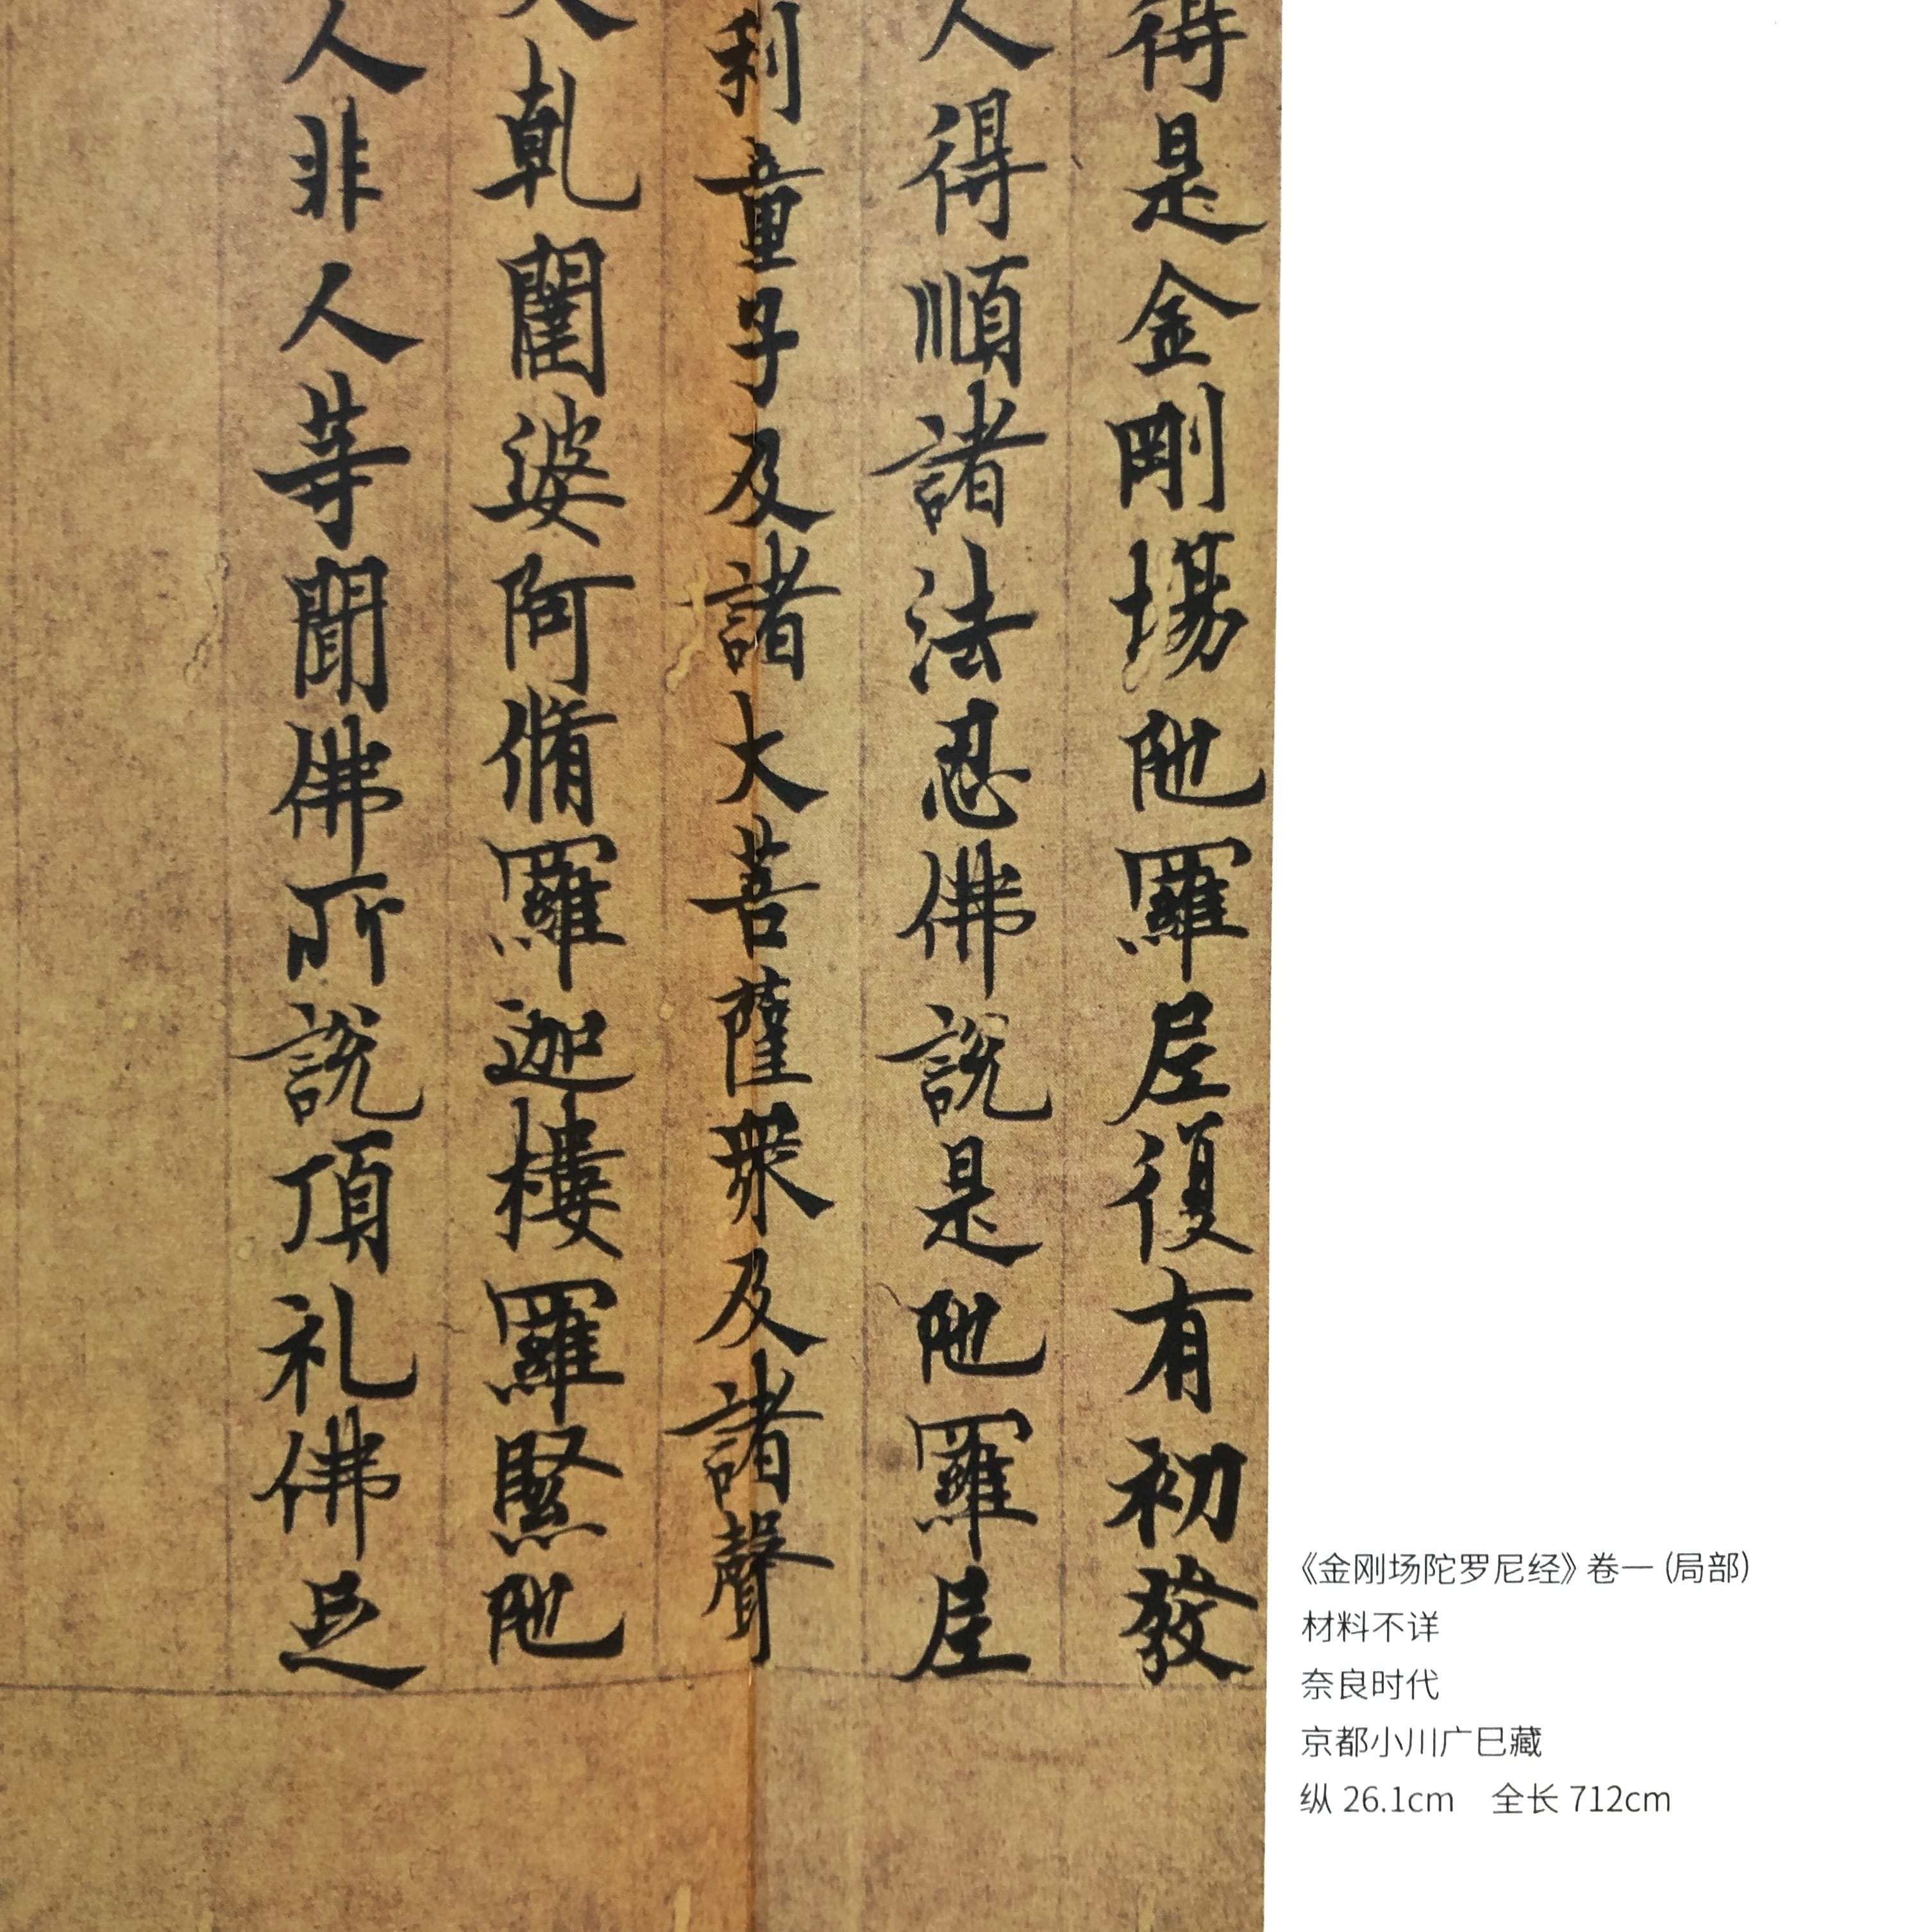 得是金剛場陁羅尼復有初發
人得順諸法忍佛說是陁羅尼
利童子及諸大菩薩衆及諸聲
乹闥婆阿脩羅迦樓羅緊陁
人非人等聞佛所說頂礼佛足
《金刚场陀罗尼经》卷一(局部)
材料不详
奈良时代
京都小川广巳藏
纵 26.1cm 全长 712cm